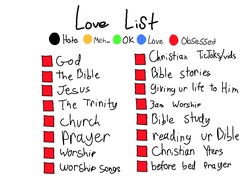 Love List
Hate Meh.. OK Love Obsessed
God
the Bible
Jesus
The Trinity
Church
Prayer
Worship
Worship Songs
Christian TicToks/vids
Bible stories
giving ur life to Him
3am Worship
Bible study
reading ur Bible
Christian Yters
before bed prayer